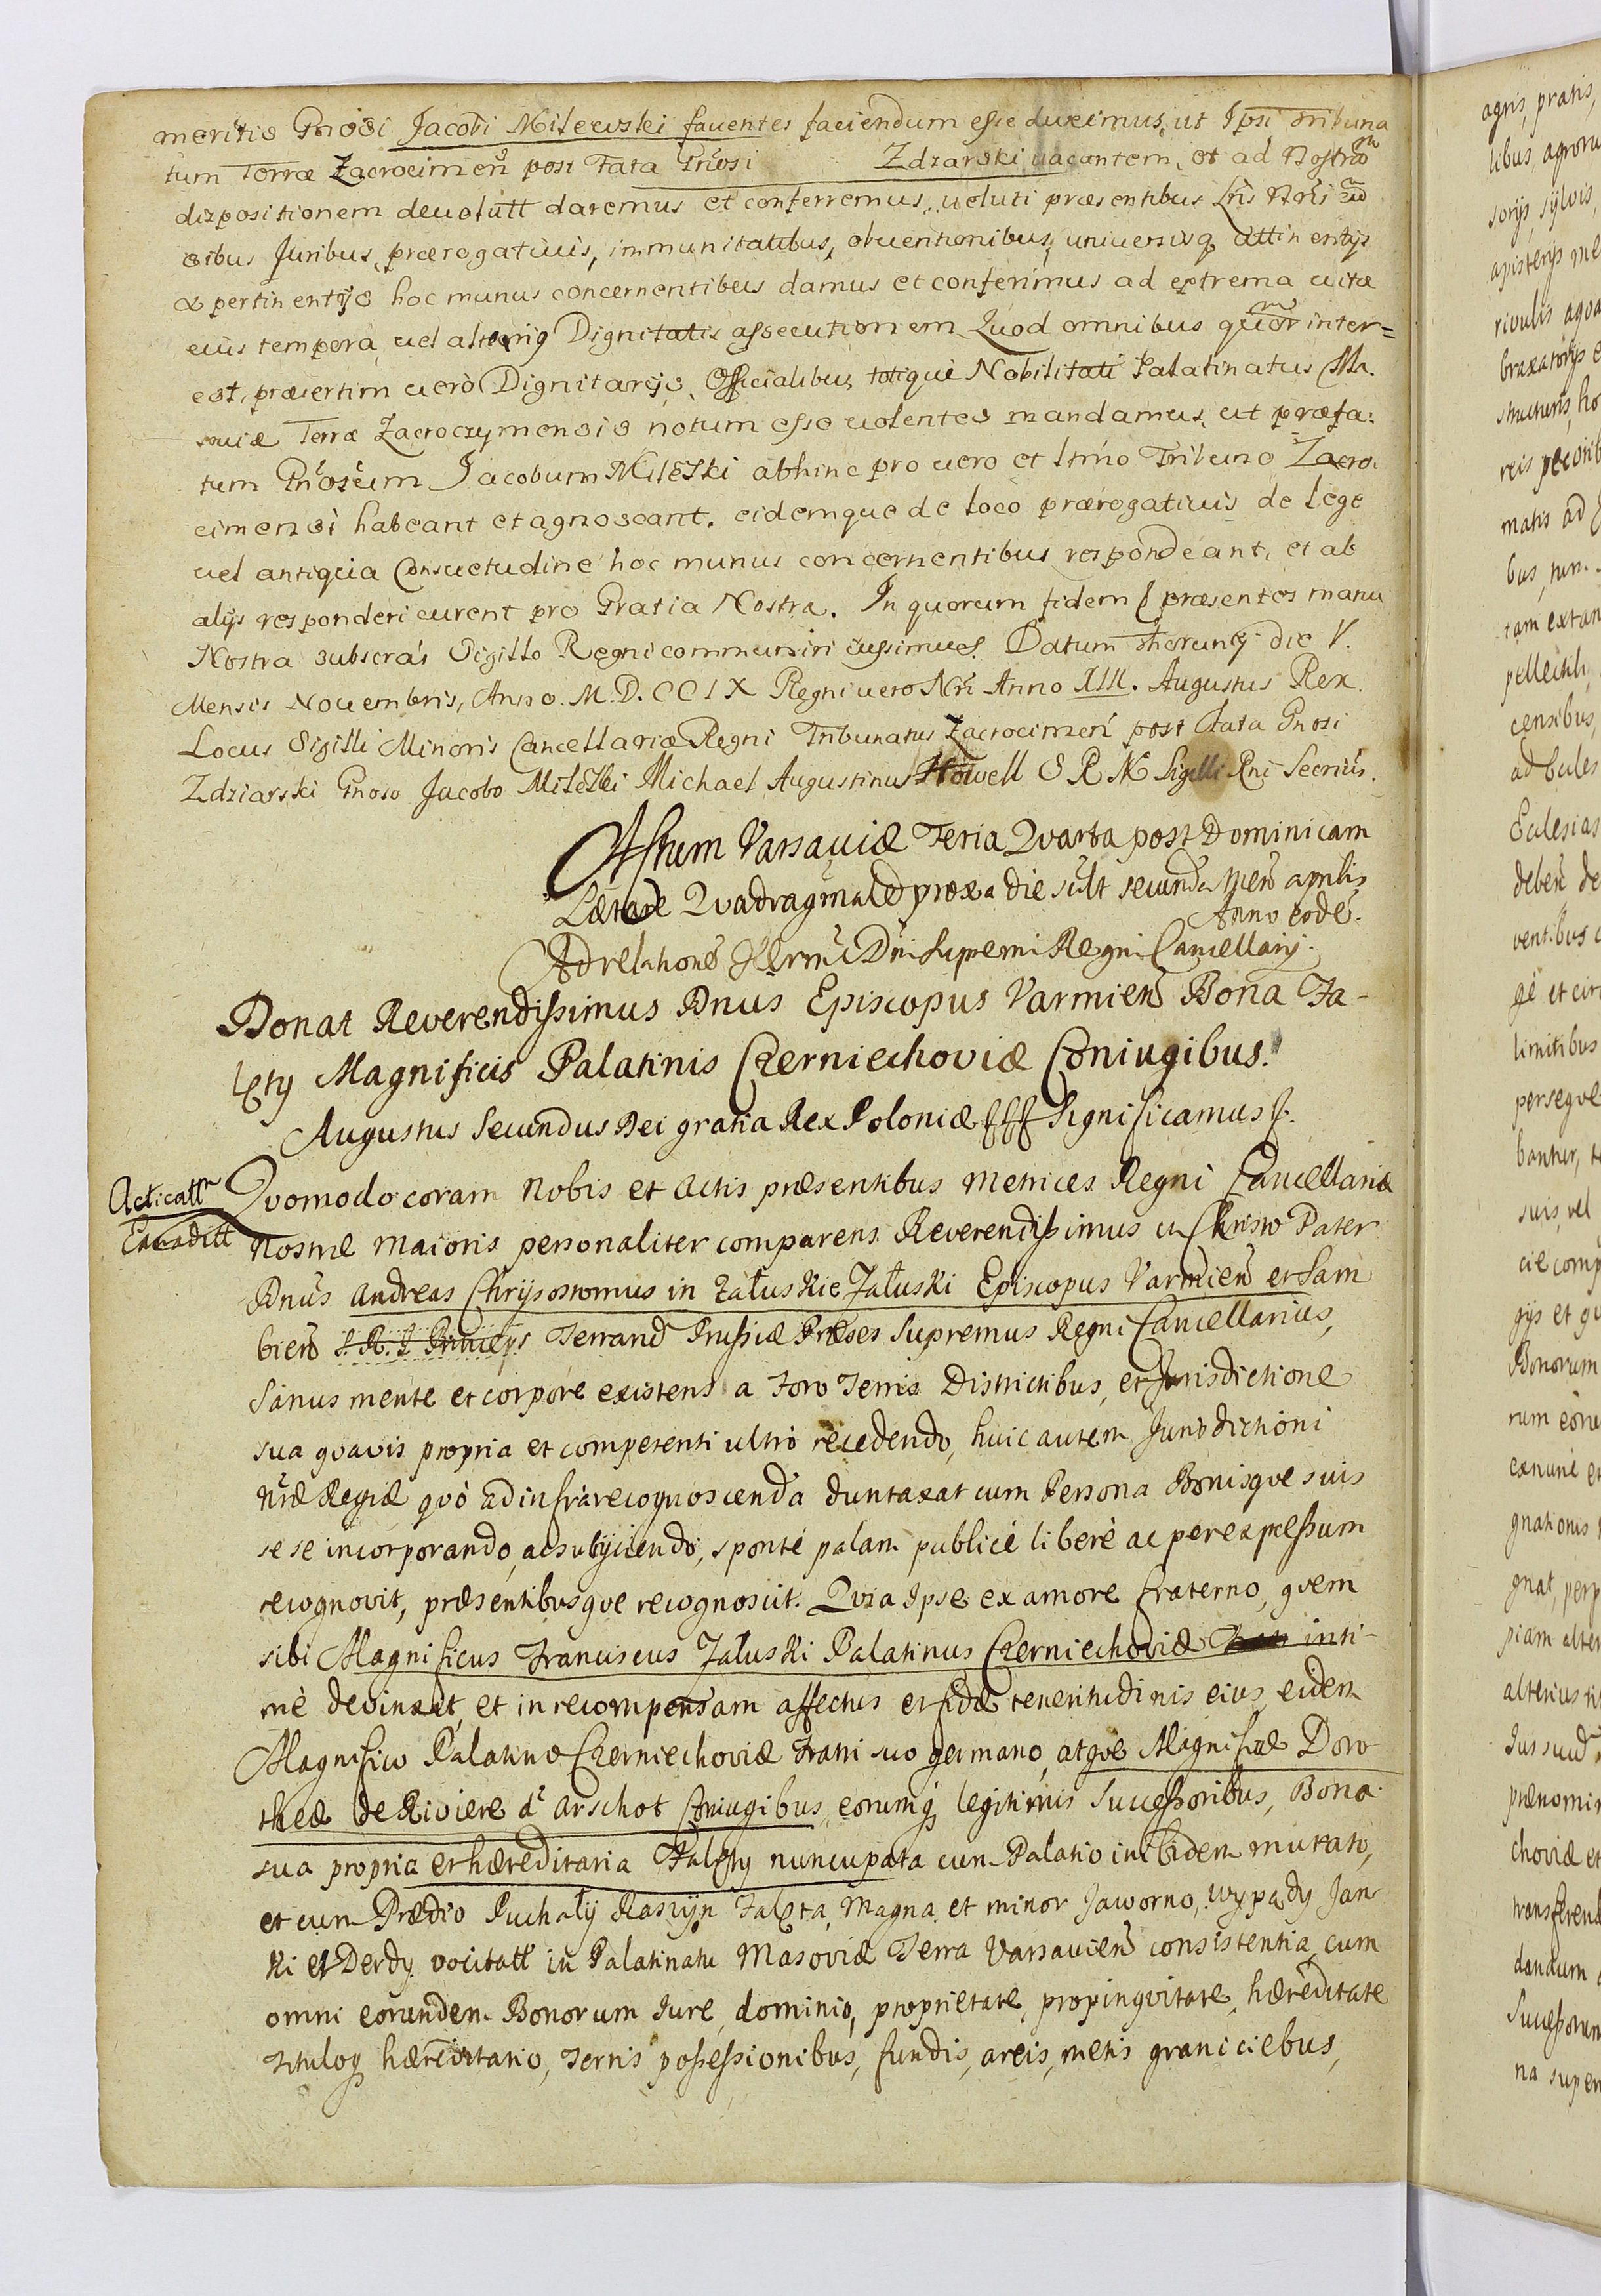 meritis Gnosi Jacobi Milewski faventes faciendum esse duximus, ut Ipsi Tribuna
tum Terræ Zacrocimen̄ post Fata Gnosi Zdzarski vacantem, et ad Nostram
dizpositionem devolutt daremus et conferremus, veluti præsentibus Lr̄is Nr̄is cū
sibus Juribus, prærogativis, immunitatibus, obventionibus, universisq attinentijs
& pertinentijs hoc munus concernentibus damus et conferimus ad extrema vitæ
eius tempora, vel alterius Dignitatis assecutionem. Quod omnibus quor inter=
est, præsertim verò Dignitarijs, Officialibus, totique Nobilitati Palatinatus Ma.
soviæ Terræ Zacroczymensis notum esse volentes mandamus, ut præfa:
tum Gnosum Jacobum Mileski abhinc pro vero et ltmo Tribuno Zacro.
cimensi habeant et agnoscant, eidemque de loco prærogativis de Lege
vel antiqua Consuetudine hoc munus concernentibus respondeant, et ab
alijs responderi curent pro Gratia Nostra. In quorum fidem præsentes manu
Nostra subscrás Sigillo Regni communiri iussimus. Datum Thoruny die V.
Mensis Novembris, Anno. M.D.CCIX Regni vero Nri Anno XIII. Augustus Rex.
Locus Sigilli Minoris Cancellariæ Regni Tribunatus Zacrocimen̄ post Fata Gnosi
Zdziarski Gnoso Jacobo Mileski Michael Augustinus Howell S R M Sigilli Rni Secriús.
Actum Varsaviæ Feria Quarta post Dominicam
Lætare Quadragmalē proxa die sclt secunda Mens̄ aprilis
Anno eodē.
Ad relationē Illrmi Dni Supremi Regni Cancellarij.
Donat Reverendissimus Dnus Episcopus Varmien̄ Bona Fa-
lęty Magnificis Palatinis Czerniechoviæ Coniugibus.
Augustus Secundus Dei gratia Rex Poloniæ fff Significamus f.
Acticattr
Extraditt
Quomodo coram Nobis et Actis præsentibus Metrices Regni Cancellariæ
Nostræ Maioris personaliter comparens Reverendissimus in Christo Pater
Dnus Andreas Chrijsostomus in Załuskie Załuski Episcopus Varmien̄ et Sam
bien̄ S. R. I. Princeps Terrarū Prussiæ Præses Supremus Regni Cancellarius,
Sanus mente et corpore existens a Foro Terris Districtibus, et Jurisdictione
sua quavis propria et competenti ultrò recedendo, huic autem Jurisdictioni
Nræ Regiæ quò ad infrà recognoscenda duntaxat cum Persona Bonisque suis
se se incorporando, ac subijciendo, spontè palam publicè liberè ac per expressum
recognovit, præsentibusque recognoscit. Quia Ipse ex amore fraterno, quem
sibi Magnificus Franciscus Załuski Palatinus Czerniechoviæ inti-
mè devinxit, et in recompensam affectus et fidæ teneritudinis eius, eidem
Magnifico Palatino Czerniechoviæ Fratri suo germano, atque Magnificæ Doro
theæ de Riviere d' Arschot Coniugibus, eorumq legitimis Successoribus, Bona
sua propria et hæreditaria Falęty nuncupata cum Palatio in ibidem mutato,
et cum Prædio Puchały Raszyn Falęta, Magna et minor Jaworno, Wypędy Jan
ki et Derdy vocitatt in Palatinatu Masoviæ Terra Varsavien̄ consistentia, cum
omni eorundem Bonorum Iure, dominio, proprietate, propinquitate, hæreditate
tituloq hæreditario, Terris possessionibus, fundis, areis, metis graniciebus,
agris, pratis,
libus, agroru
sorijs, sylvis,
apisterijs mel
rivulis aqua
braxatorijs e
structuris, ho
reis pecorib
matis ad
bus, nun
tam extan
pellectili
censibus,
ad bules
Ecclesias
deben̄ de
ventibus
gè et cir
limitibus
perseque
bantur, te
suis, vel
cie comp
gijs et gu
Bonorum
rum eoru
exnunc et
gnationis
gnat, perp
piam alter
alterius tit
Ius suū
prænomin
choviæ et
transferend
dandum
Successorum
na super